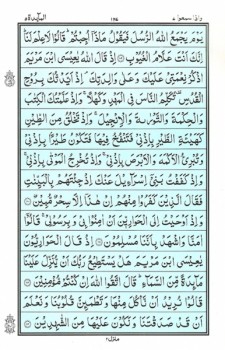 واذا سمعوا ٧
١٢٤
المآئدة ٥
يَوْمَ يَجْمَعُ اللّٰهُ الرُّسُلَ فَيَقُوْلُ مَاذَاۤ اُجِبْتُمْ ؕ قَالُوْا لَا عِلْمَ لَنَا ؕ
اِنَّكَ اَنْتَ عَلَّامُ الْغُيُوْبِ ۝ اِذْ قَالَ اللّٰهُ يٰعِيْسَى ابْنَ مَرْيَمَ
اذْكُرْ نِعْمَتِيْ عَلَيْكَ وَ عَلٰى وَالِدَتِكَ ۘ اِذْ اَيَّدْتُّكَ بِرُوْحِ
الْقُدُسِ ۫ تُكَلِّمُ النَّاسَ فِي الْمَهْدِ وَكَهْلًا ۚ وَ اِذْ عَلَّمْتُكَ الْكِتٰبَ
وَالْحِكْمَةَ وَالتَّوْرٰىةَ وَالْاِنْجِيْلَ ۚ وَاِذْ تَخْلُقُ مِنَ الطِّيْنِ
كَهَيْـَٔةِ الطَّيْرِ بِاِذْنِيْ فَتَنْفُخُ فِيْهَا فَتَكُوْنُ طَيْرًۢا بِاِذْنِيْ
وَتُبْرِئُ الْاَكْمَهَ وَالْاَبْرَصَ بِاِذْنِيْ ۚ وَاِذْ تُخْرِجُ الْمَوْتٰى بِاِذْنِيْ ۚ
وَاِذْ كَفَفْتُ بَنِيْۤ اِسْرَآءِيْلَ عَنْكَ اِذْ جِئْتَهُمْ بِالْبَيِّنٰتِ
فَقَالَ الَّذِيْنَ كَفَرُوْا مِنْهُمْ اِنْ هٰذَاۤ اِلَّا سِحْرٌ مُّبِيْنٌ ۝
وَاِذْ اَوْحَيْتُ اِلَى الْحَوَارِيّٖنَ اَنْ اٰمِنُوْا بِيْ وَبِرَسُوْلِيْ ۚ قَالُوْۤا
اٰمَنَّا وَاشْهَدْ بِاَنَّنَا مُسْلِمُوْنَ ۝ اِذْ قَالَ الْحَوَارِيُّوْنَ
يٰعِيْسَى ابْنَ مَرْيَمَ هَلْ يَسْتَطِيْعُ رَبُّكَ اَنْ يُّنَزِّلَ عَلَيْنَا
مَآئِدَةً مِّنَ السَّمَآءِ ؕ قَالَ اتَّقُوا اللّٰهَ اِنْ كُنْتُمْ مُّؤْمِنِيْنَ ۝
قَالُوْا نُرِيْدُ اَنْ نَّاْكُلَ مِنْهَا وَتَطْمَئِنَّ قُلُوْبُنَا وَنَعْلَمَ
اَنْ قَدْ صَدَقْتَنَا وَنَكُوْنَ عَلَيْهَا مِنَ الشّٰهِدِيْنَ ۝
منزل ٢